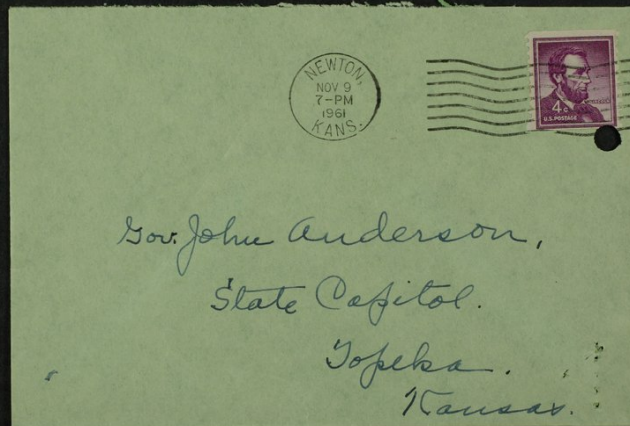 NEWTON,
NOV 9
7-PM
1961
KANS.
4¢
U.S. POSTAGE
Gov. John Anderson,
State Capitol.
Topeka.
Kansas.